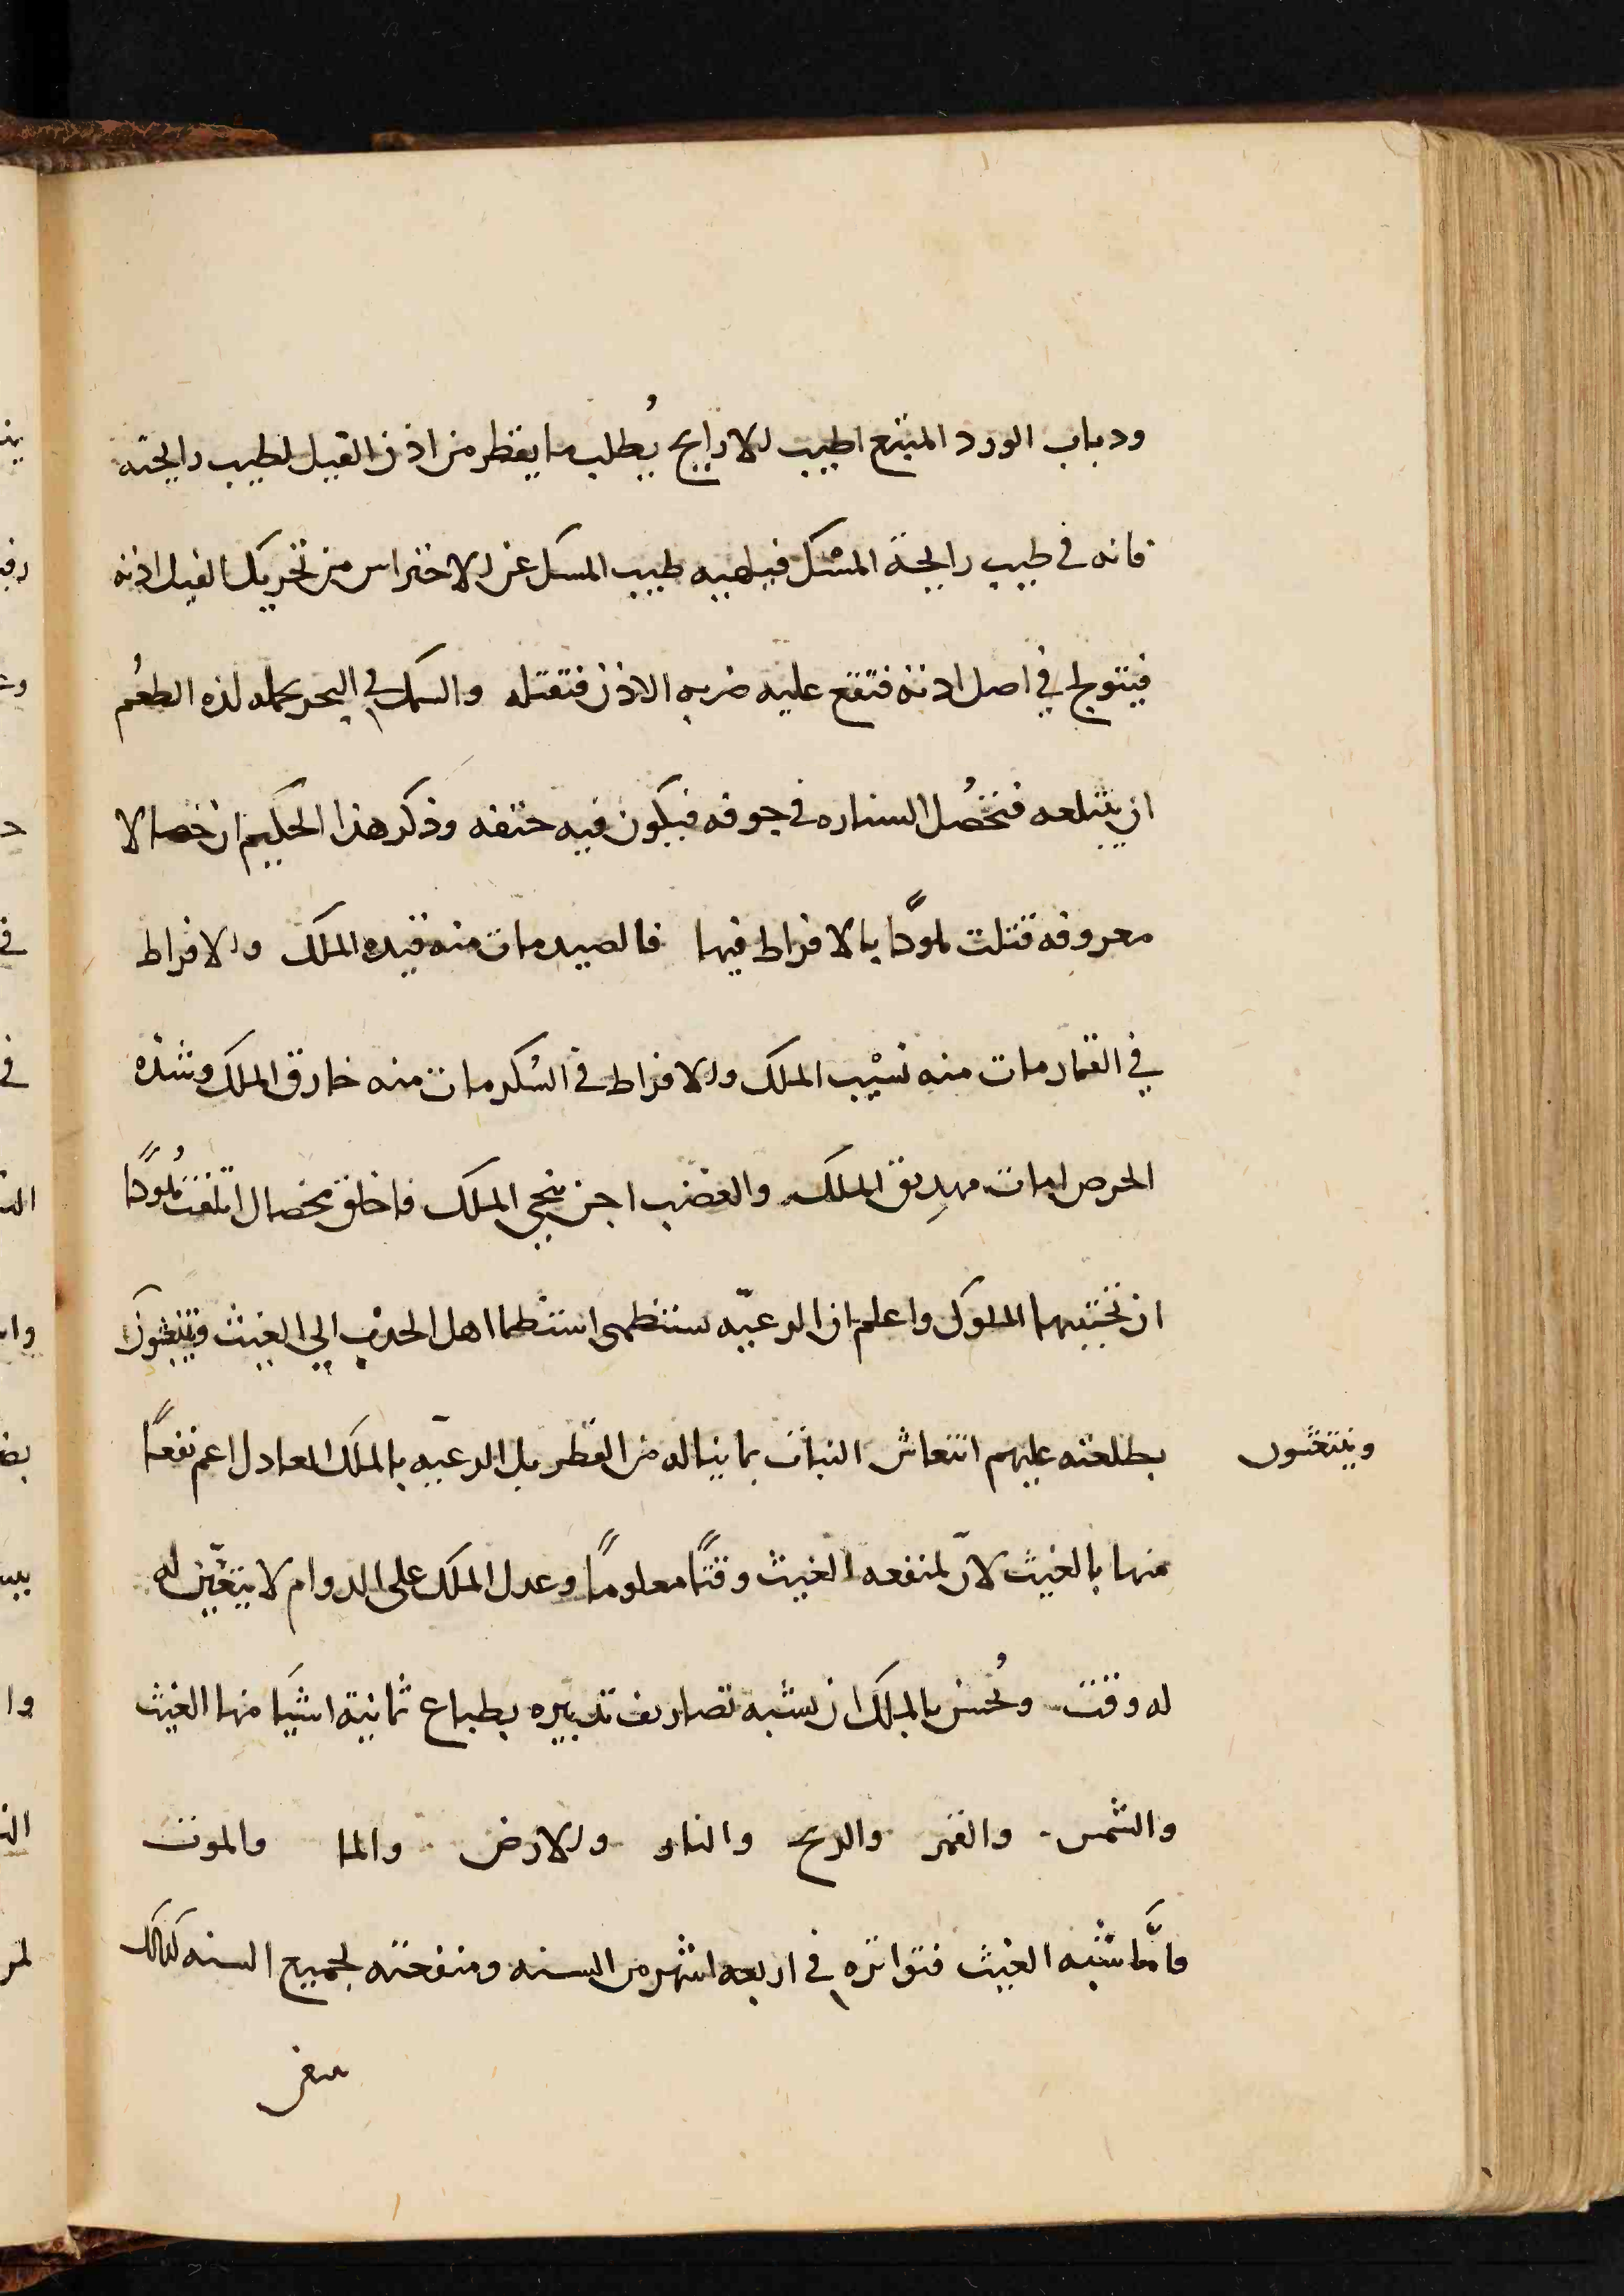 ودباب الورد المتتبع اطيب الاراييح يُطلب ما يقطر من اذن الفيل لطيب رايحته
فانه في طيب رايحة المسك فيلهيه طيب المسك عن الاحتراس من تحريك الفيل اذنه
فيتولج في اصل اذنه فتقع عليه ضربه الاذن فتقتله والسمك في البحر تحمله لذه الطعُم
ان يبتلعه فتحصُل السناره في جوفه فيكون فيه حتفه وذكر هذا الحكيم ان خصالا
معروفه قتلت ملوكًا بالافراط فيها فالصيد مات منه فيده الملك والافراط
في القمار مات منه نسيْب الملك والافراط في السُكر مات منه خارق الملك وشده
الحرص امات مهدِيق الملك والغضب اجن ينجي الملك فاخلق بخصال اتلفت مُلوكًا
ان تجتنبها الملوك واعلم ان الرعيّه ستظمى استظما اهل الجدْب الى الغيث وينتعشون
بطلعته عليهم انتعاش النبات بما يناله من القطر بل الرعيّه بالملك العادل اعم نفعًا
وينتعشون
منها بالغيث لانّ لمنفعه الغيث وقتًا معلومًا وعدل الملك على الدوام لا يتعيّن له
له وقت ويُحسن بالملك ان يشبه تصاريف تدبيره بطباع ثمانية اشيَا منها الغيث
والشمس والقمر والريح والنار والارض والما والموت
فامَّا شبْه الغيث فتواتره في اربعه اشهر من السنه ومنفعته لجميع السنه كذلك